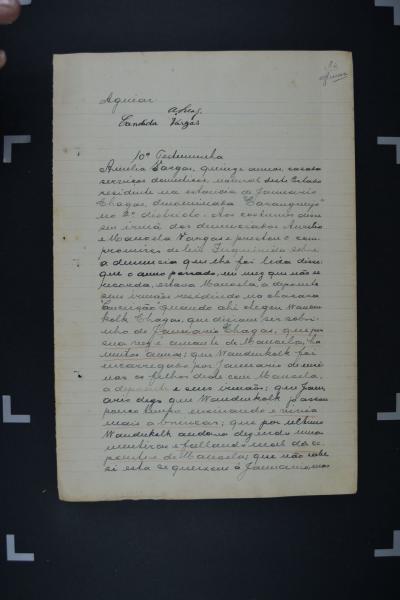 Aguiar
Candida Vargas
10ª Testemunha
Amelia Vargas, quinze annos, casada
serviços domesticos, natural deste Estado
residente na estancia de Januario
Chagas, denominada "Caranguejo"
no 2º districto. Aos costumes disse
ser irmã dos denunciados Aurelio
e Manoela Vargas e prestou o com
promisso da lei. Inquirida sobre
a denuncia que lhe foi lida disse
que o anno passado, em mez que não se
recorda, estava Manoela, a depoente
e seus irmãos residindo na chacara
quando ahi chegou Wander
kolk Chagas, que diziam ser sobri
nho de Januario Chagas, que por
sua vez é amante de Manoela, ha
muitos annos; que Wanderkolk foi
encarregado por Januario de ensi
nar os filhos deste com Manoela,
a depoente e seus irmãos; que
que Wanderkolk passou
pouco tempo ensinando e
mais a brincar; que por ultimo
Wanderkolk andava dizendo umas
mentiras e fallando mal da
depoente e de Manoela; que não sabe
si esta se queixou á Januario, mas